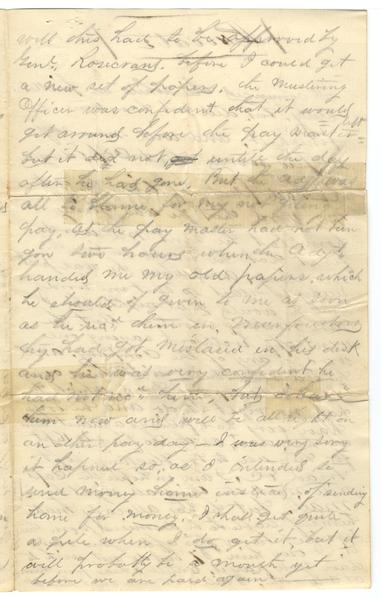 well this had to be approved by
Genl. Rosecrans. before I could get
a new set of papers. the mustering
Officer was confident that it would
get around before the pay master left
but it did not, untill the day
after he had gon. But the adjt was
all to blame for my not
pay, as the pay master had not ben
gon two hours when the Adjt
handed me my old papers, which
he should of given to me as soon
as he recd them in.
they had got mislaced in his desk
and he was very confident he
had not recd them, but
them now and will be all right on
an other pay day — I was very sorry
it hapned so, as I entended to
send money home instead of sending
home for money. I shall get quite
a pile when I do get it but it
will probably be a month yet
before we are paid again